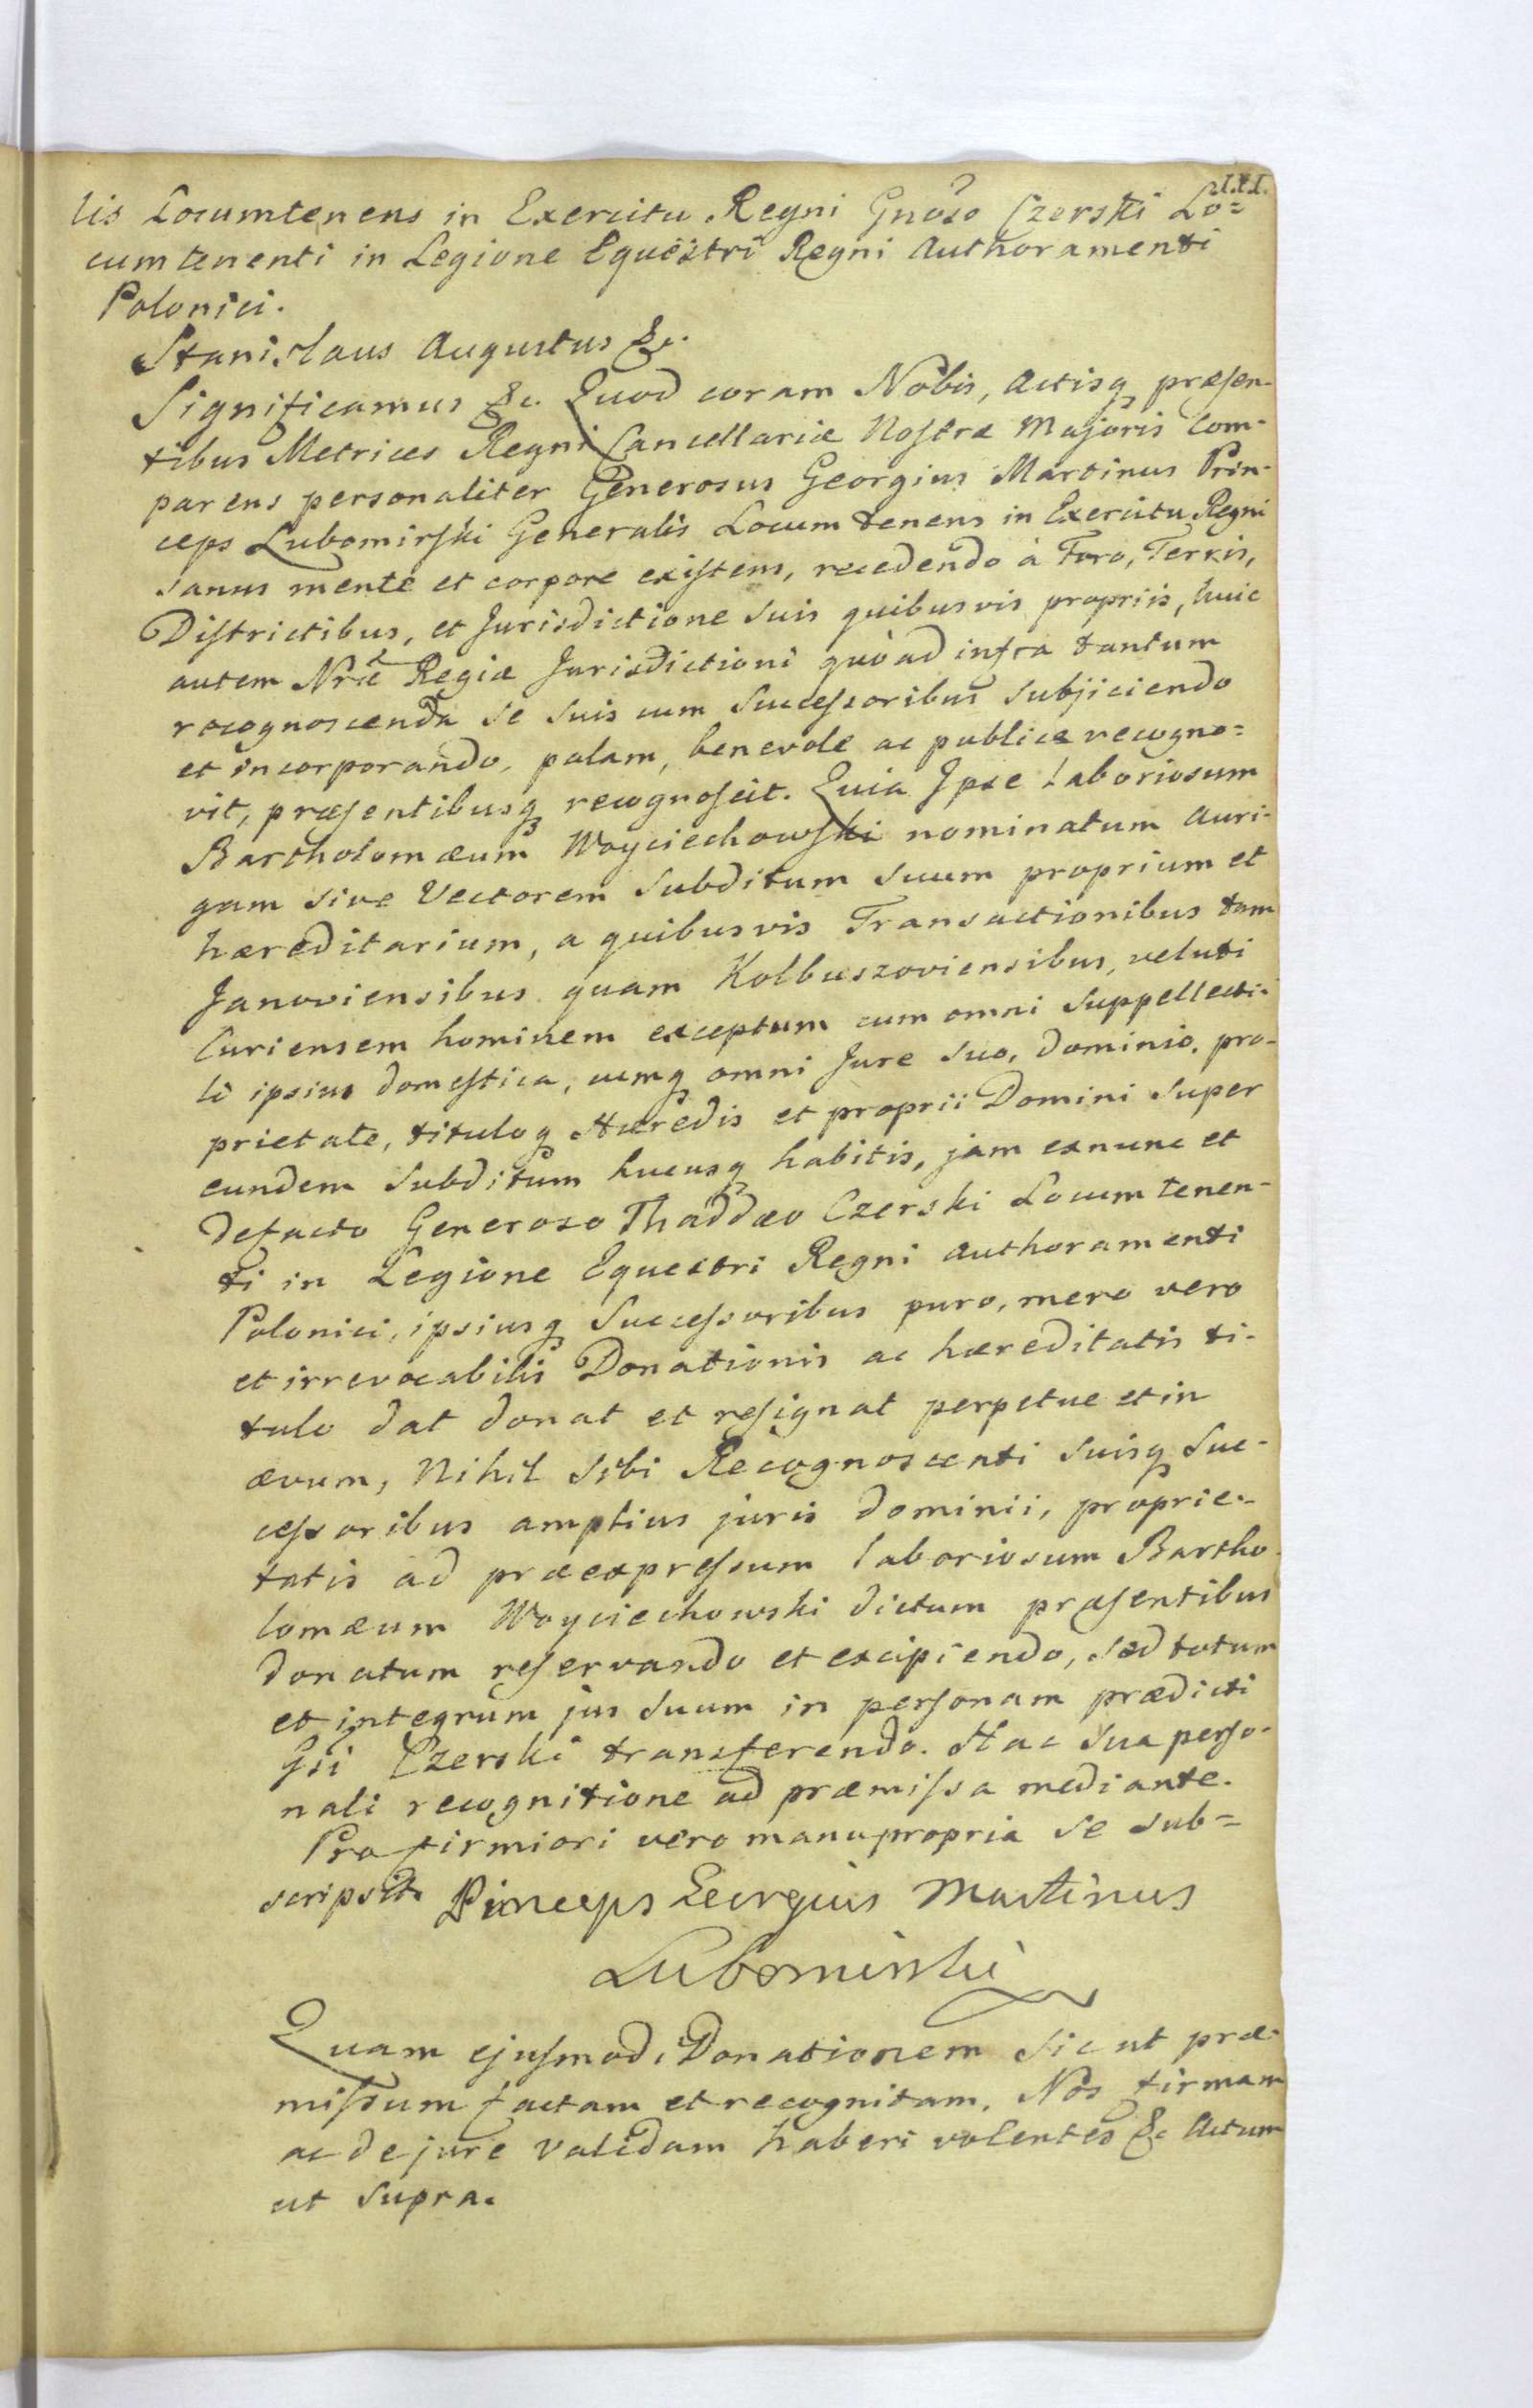 lis Locumtenens in Exercitu Regni Gnoso Czerski Lo=
cumtenenti in Legione Equestri Regni Authoramenti
Polonici.
Stanislaus Augustus &c.
Significamus &c. Quod coram Nobis, Actisq præsen-
tibus Metrices Regni Cancellariæ Nostræ Majoris Com-
parens personaliter Generosus Georgius Martinus Prin-
ceps Lubomirski Generalis Locum tenens in Exercitu Regni
sanus mente et corpore existens, recedendo à Foro, Terris,
Districtibus, et Jurisdictione suis quibusvis propriis, huic
autem Nræ Regiæ Jurisdictioni quò ad infra tantum
recognoscenda se suis cum Successoribus subjiciendo
et incorporando, palam, benevole ac publice recogno=
vit, præsentibusq recognoscit. Quia Ipse laboriosum
Bartholomæum Woyciechowski nominatum Auri-
gam sive Vectorem Subditum suum proprium et
hæreditarium, a quibusvis Transactionibus tam
Janoviensibus quam Kolbuszoviensibus, veluti
Curiensem hominem exceptum cum omni Suppellecti-
li ipsius domestica, cumq omni Jure suo, dominio, pro-
prietate, tituloq Hæredis et proprii Domini super
eundem Subditum hucusq habitis, jam exnunc et
defacto Generoso Thaddæo Czerski Locum tenen-
ti in Legione Equestri Regni Authoramenti
Polonici, ipsiusq Successoribus puro, mero vero
et irrevocabilis Donationis ac hæreditatis ti-
tulo dat donat et resignat perpetue et in
ævum, Nihil sibi Recognoscenti suisq Suc-
cessoribus amplius juris dominii, proprie-
tatis ad præexpressum laboriosum Bartho-
lomæum Woyciechowski dictum præsentibus
donatum reservando et excipiendo, sed totum
et integrum jus suum in personam prædicti
Gsi Czerski transferendo. Hac sua perso-
nali recognitione ad præmissa mediante.
Pro firmiori vero manupropria se sub=
scripsit. Princeps Georgius Martinus
Lubomirski
Quam ejusmodi Donationem sic ut præ-
missum factam et recognitam, Nos firmam
ac de jure validam haberi volentes &c Actum
ut supra.